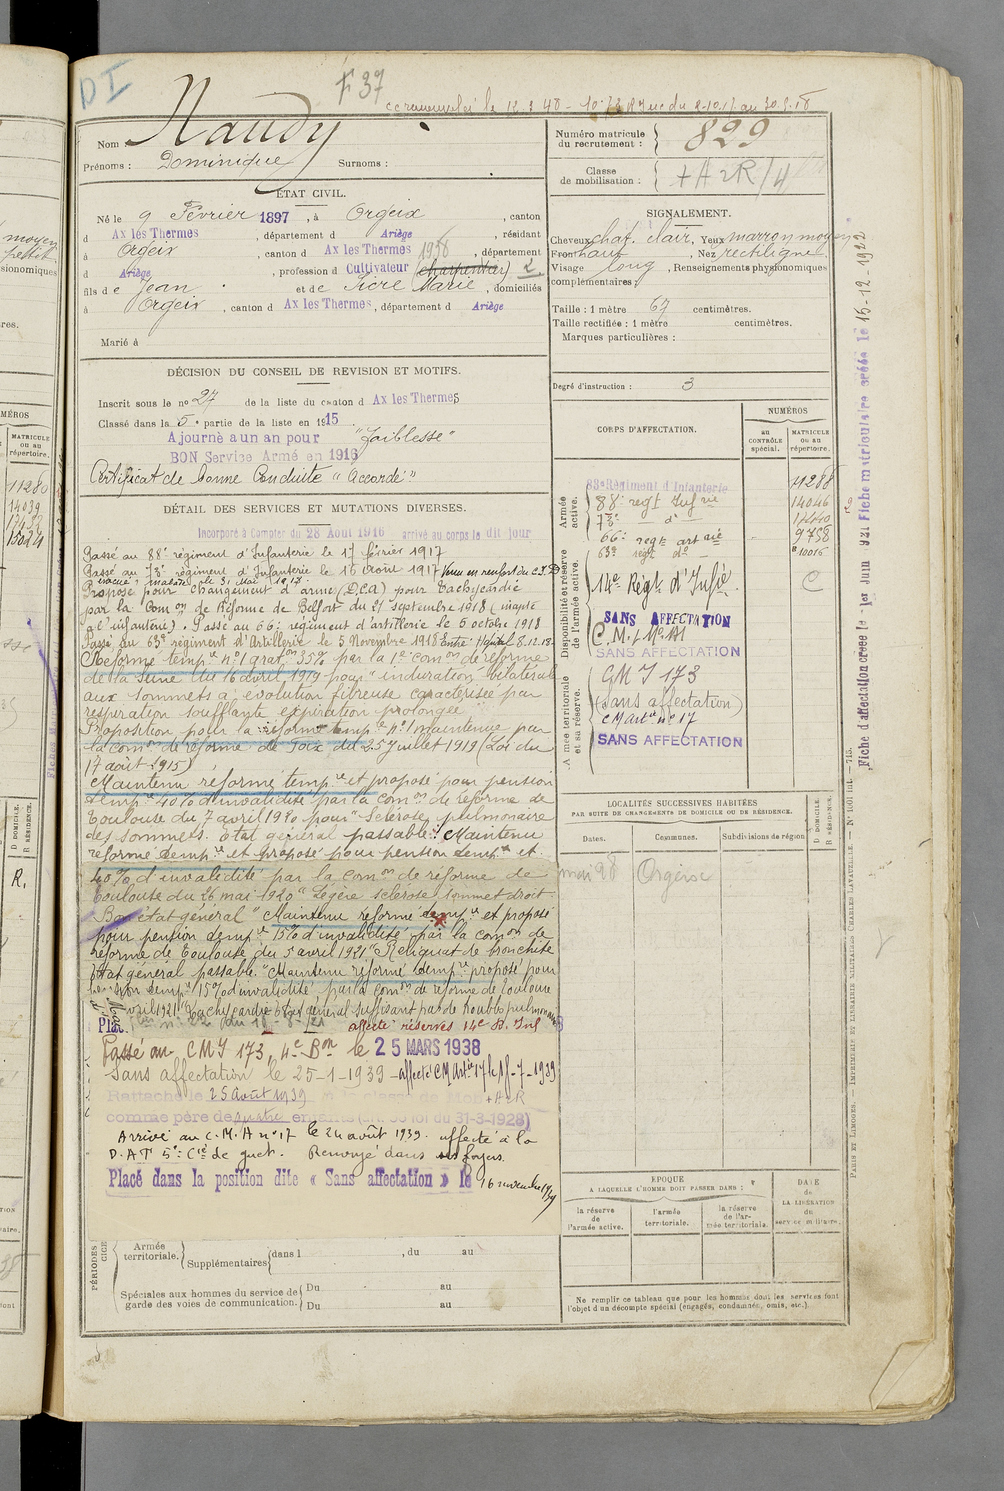 DI
F 37
Nom Naudy
Prénoms : Dominique Surnoms :
ÉTAT CIVIL.
Né le 9 Février 1897, à Orgeix, canton
d Ax les Thermes, département d Ariège, résidant
à Orgeix, canton d Ax les Thermes, département
d Ariège, profession d Cultivateur (charpentier)
fils de Jean et de Sicre Marie, domiciliés
à Orgeix, canton d Ax les Thermes, département d Ariège
Marié à
DÉCISION DU CONSEIL DE REVISION ET MOTIFS.
Inscrit sous le n° 27 de la liste du canton d Ax les Thermes
Classé dans la 5e partie de la liste en 1915
Ajourné a un an pour "Faiblesse"
BON Service Armé en 1916
Certificat de Bonne Conduite "Accordé"
DÉTAIL DES SERVICES ET MUTATIONS DIVERSES.
Incorporé à Compter du 28 Août 1916 arrivé au corps le dit jour
Passé au 88e régiment d'Infanterie le 17 février 1917
Passé au 73e régiment d'Infanterie le 16 août 1917 Venu en renfort du
évacué malade le 31 mai 1917
Proposé pour changement d'arme (DCA) pour tachycardie
par la Comon de Réforme de Belfort du 21 septembre 1918 (inapte
à l'infanterie). Passé au 66e régiment d'artillerie le 6 octobre 1918
Passé au 63e régiment d'Artillerie le 5 Novembre 1918 Entré Hôpital 8.12.18
Réformé tempre n° 1 graton 35% par la 1e comon de réforme
de la Seine du 16 avril 1919 pour "induration bilatérale
aux sommets à évolution fibreuse caractérisée par
respiration soufflante expiration prolongée"
Proposition pour la réforme tempre n° 1 maintenue par
la comon de réforme de Foix du 25 juillet 1919 (Loi du
17 août 1915)
Maintenu réformé tempre et proposé pour pension
tempre 40% d'invalidité par la comon de réforme de
Toulouse du 7 avril 1920 pour "Sclérose pulmonaire
des sommets. état général passable". Maintenu
réformé tempre et proposé pour pension tempre et
40% d'invalidité par la comon de réforme de
Toulouse du 26 mai 1920 "Légère sclérose sommet droit.
Bon état général" Maintenu réformé tempre et proposé
pour pension tempre 15% d'invalidité par la comon de
réforme de Toulouse du 5 avril 1921 "Reliquat de bronchite
Etat général passable." Maintenu réformé tempre proposé pour
tempre 15% d'invalidité par la comon de réforme de Toulouse
avril 1921 "Tachycardie état général suffisant pas de troubles pulmonaires
Plac affecté réserves 14e R. Inf
Passé au CMI 173, 4e Bon le 25 MARS 1938
Sans affectation le 25-1-1939 - affecté CM Artie 17 le 15-7-1939
Rattaché le 25 août 1939 à la classe de Mob + A 2 R
comme père de quatre enfants (art. 58 loi du 31-3-1928)
Arrivé au C.M.A n° 17 le 24 août 1939. affecté à la
D.A.T 5e Cie de guet. Renvoyé dans ses foyers.
Placé dans la position dite « Sans affectation » le 16 novembre 1939
PÉRIODES
Armée territoriale. Supplémentaires dans l , du au
Spéciales aux hommes du service de garde des voies de communication. Du au
Du au
Numéro matricule du recrutement : 829
Classe de mobilisation : + A 2 R / 4
SIGNALEMENT.
Cheveux chat. clair, Yeux marron moyen
Front haut, Nez rectiligne
Visage long, Renseignements physionomiques
complémentaires :
Taille : 1 mètre 67 centimètres.
Taille rectifiée : 1 mètre centimètres.
Marques particulières :
Degré d'instruction : 3
CORPS D'AFFECTATION.
NUMÉROS
AU CONTRÔLE SPÉCIAL.
MATRICULE ou au répertoire.
Armée active.
88e Régiment d'Infanterie 11288
88e regt Infrie 14046
73e — de —
66e regt artrie 9758
63e regt de 10016
Disponibilité et réserve de l'armée active.
14e Régt d'Infie C
SANS AFFECTATION
SANS AFFECTATION
Armée territoriale et sa réserve.
CMI 173
(sans affectation)
CM artie n° 17
SANS AFFECTATION
LOCALITÉS SUCCESSIVES HABITÉES
PAR SUITE DE CHANGEMENTS DE DOMICILE OU DE RÉSIDENCE.
Dates. Communes. Subdivisions de région.
D. DOMICILE.
R. RÉSIDENCE.
mai 98 Orgeix
ÉPOQUE
A LAQUELLE L'HOMME DOIT PASSER DANS :
DATE DE LA LIBÉRATION du service militaire.
la réserve de l'armée active.
l'armée territoriale.
la réserve de l'armée territoriale.
Ne remplir ce tableau que pour les hommes dont les services font
l'objet d'un décompte spécial (engagés, condamnés, omis, etc.).
Fiche d'affectation créée le 1er Juin 1921 Fiche matriculaire créée le 15-12-1922
PARIS ET LIMOGES. — IMPRIMERIE ET LIBRAIRIE MILITAIRES CHARLES LAVAUZELLE. — N° 1001 int. — 715.